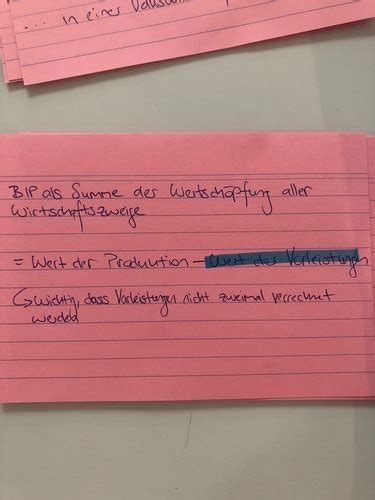 ... in einer
BIP als Summe der Wertschöpfung aller
Wirtschaftszweige
= Wert der Produktion - Wert der Vorleistungen
↳ wichtig, dass Vorleistungen nicht zweimal verrechnet
werden